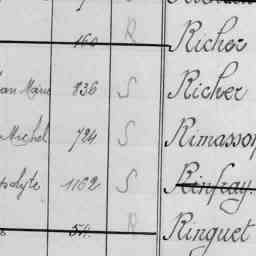 160 R Richer
ean Marie 836 S Richer
Michel 724 S Rimasson
polyte 1162 S Rinfray
R Ringuet